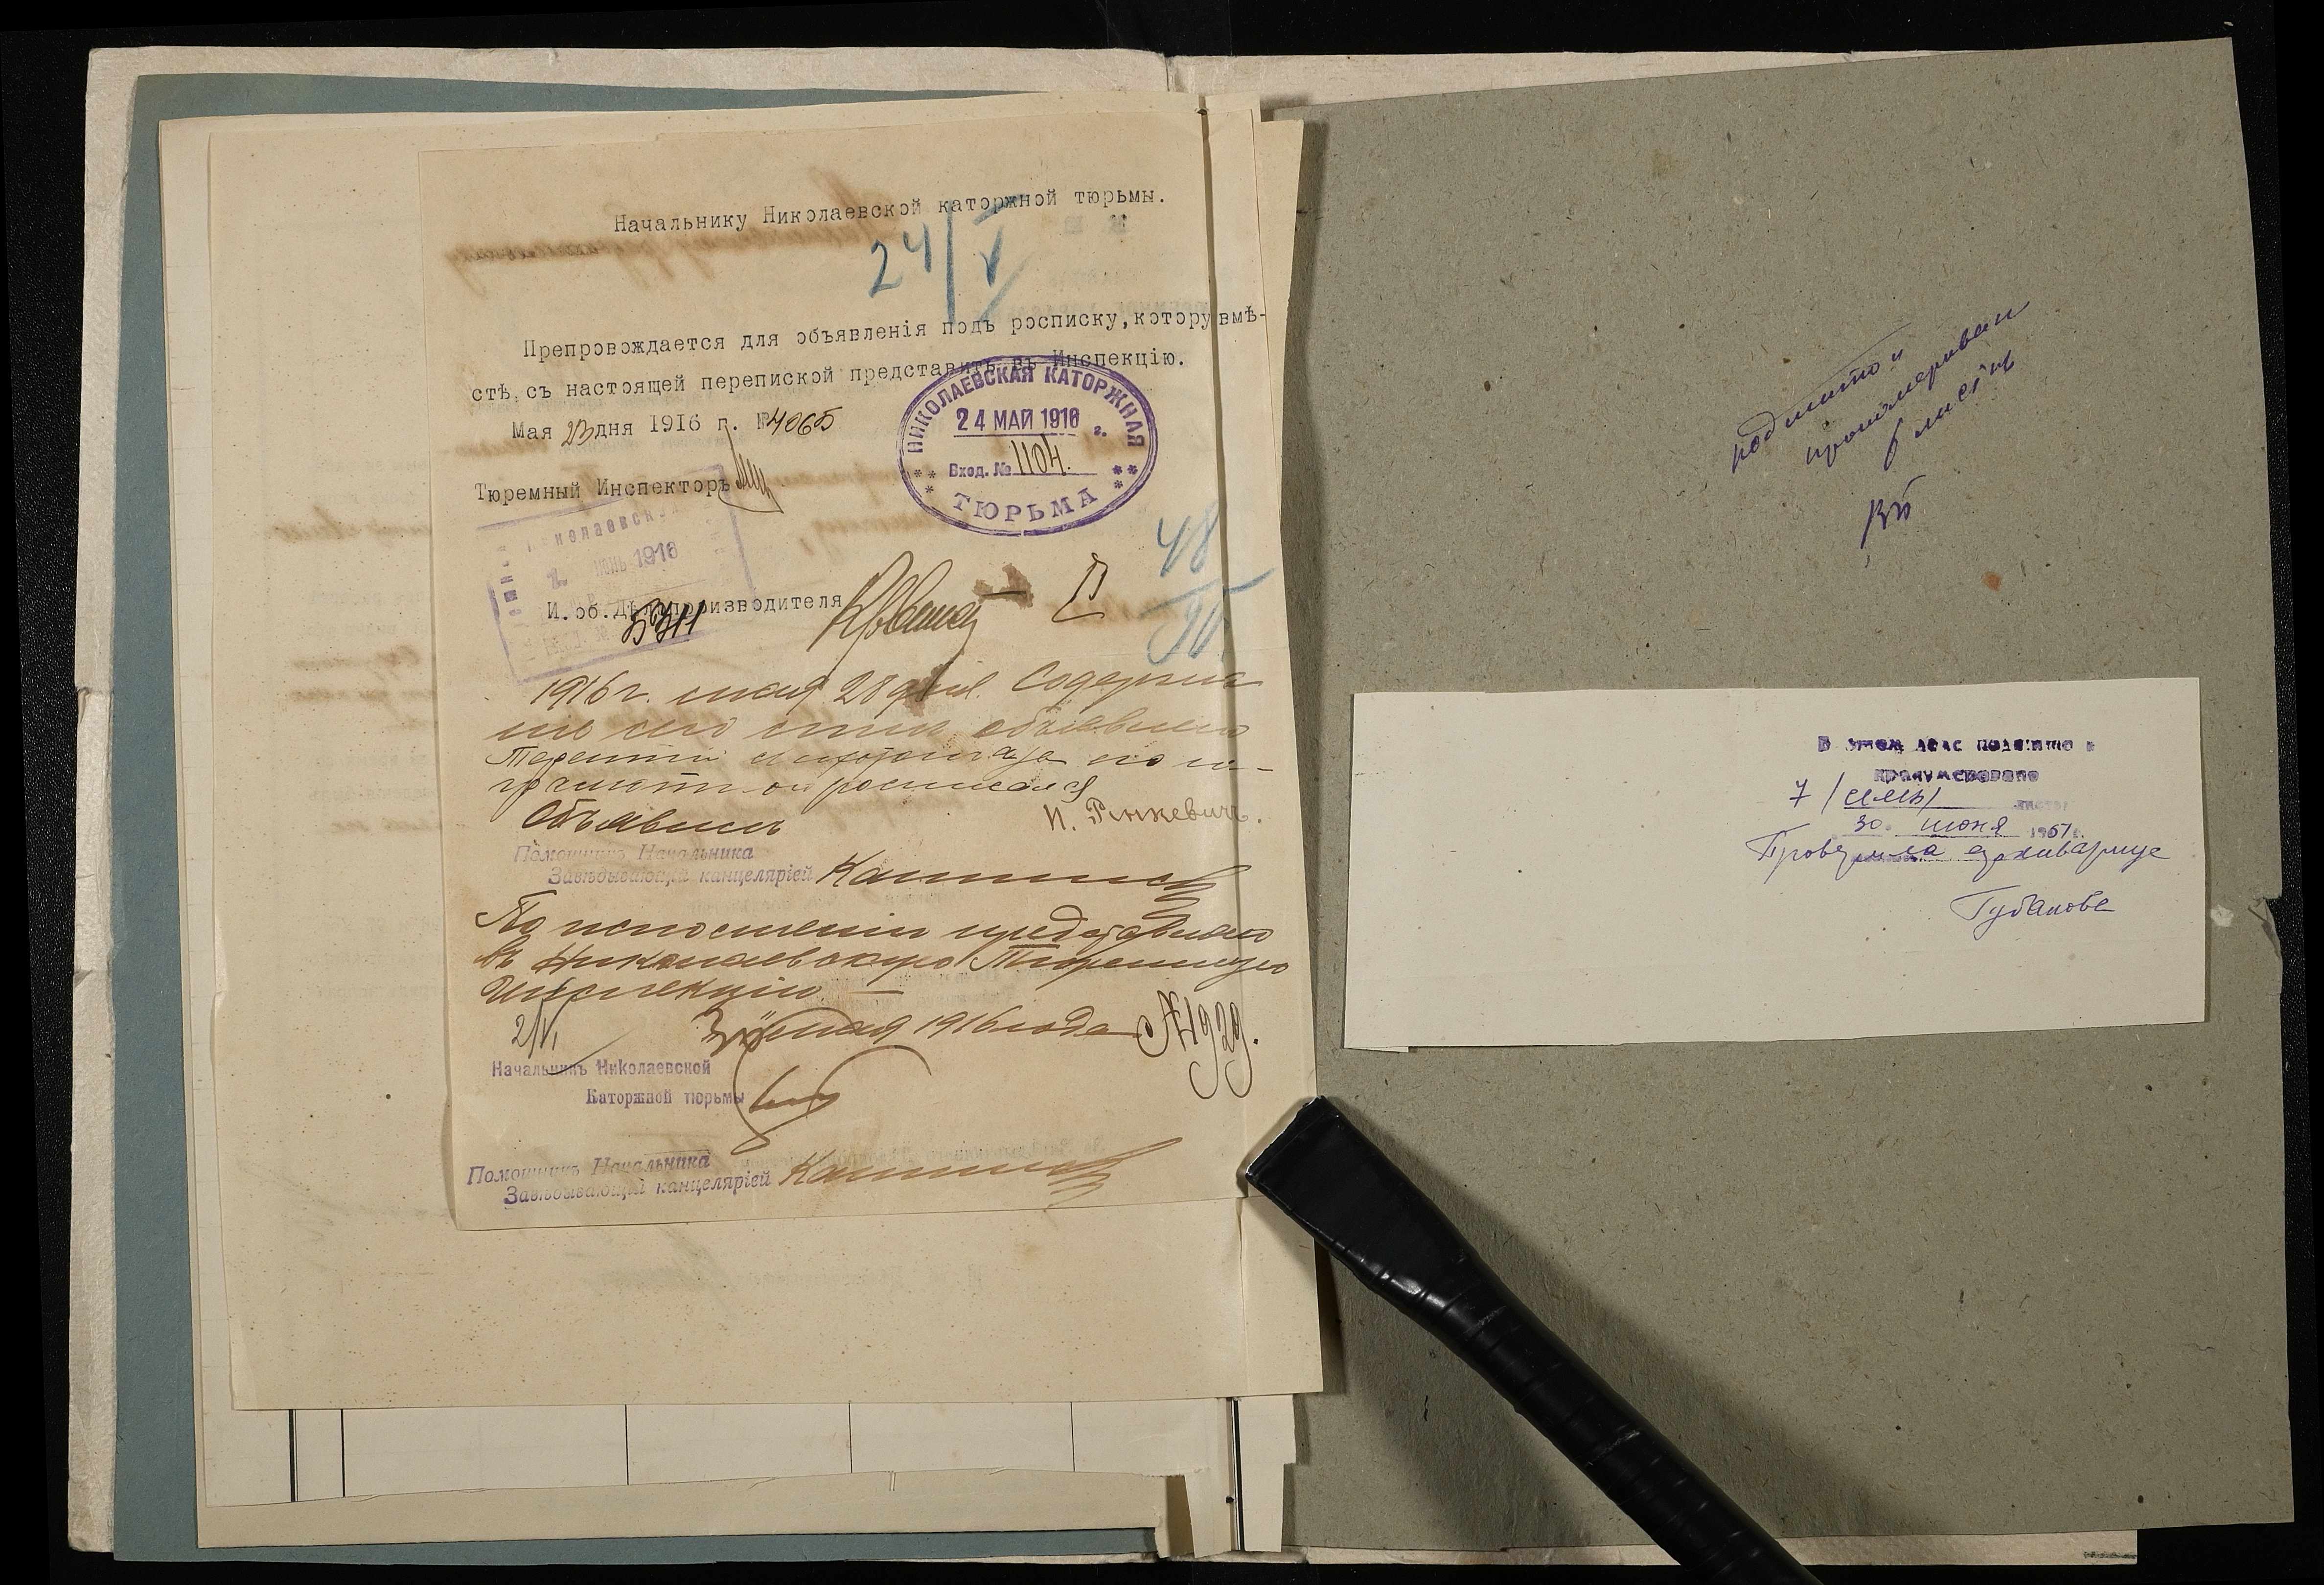 Начальнику Николаевской каторжной тюрьмы.
24/V
Препровождается для объявленія подъ росписку, котору вмѣ-
стѣ съ настоящей перепиской представить въ Инспекцію.
Мая 23 дня 1916 г. №4065
НИКОЛАЕВСКАЯ КАТОРЖНАЯ
24 МАЙ 1916 г.
Вход. № 1104.
ТЮРЬМА
Тюремный Инспекторъ
Николаевск
ІЮНЬ 1916
И. об. Дѣлопроизводителя
48
1916 г. мая 28 дня. Содержа
ніе сего мнѣ объявлено
грамотѣ росписался
Объявилъ
И. Ринкевичъ.
Помощникъ Начальника
Завѣдывающій канцеляріей
По исполненіи представляю
въ Николаевскую Тюремную
Инспекцію
2/VI
30 мая 1916 года №1929.
Начальникъ Николаевской
Каторжной тюрьмы
Помощникъ Начальника
Завѣдывающій канцеляріей
подшито и
пронумерован
6 лист
В этом деле подшито и
пронумеровано
7 /семь/ листов
30 июня 1961 г.
Проверила архивариус
Губанова